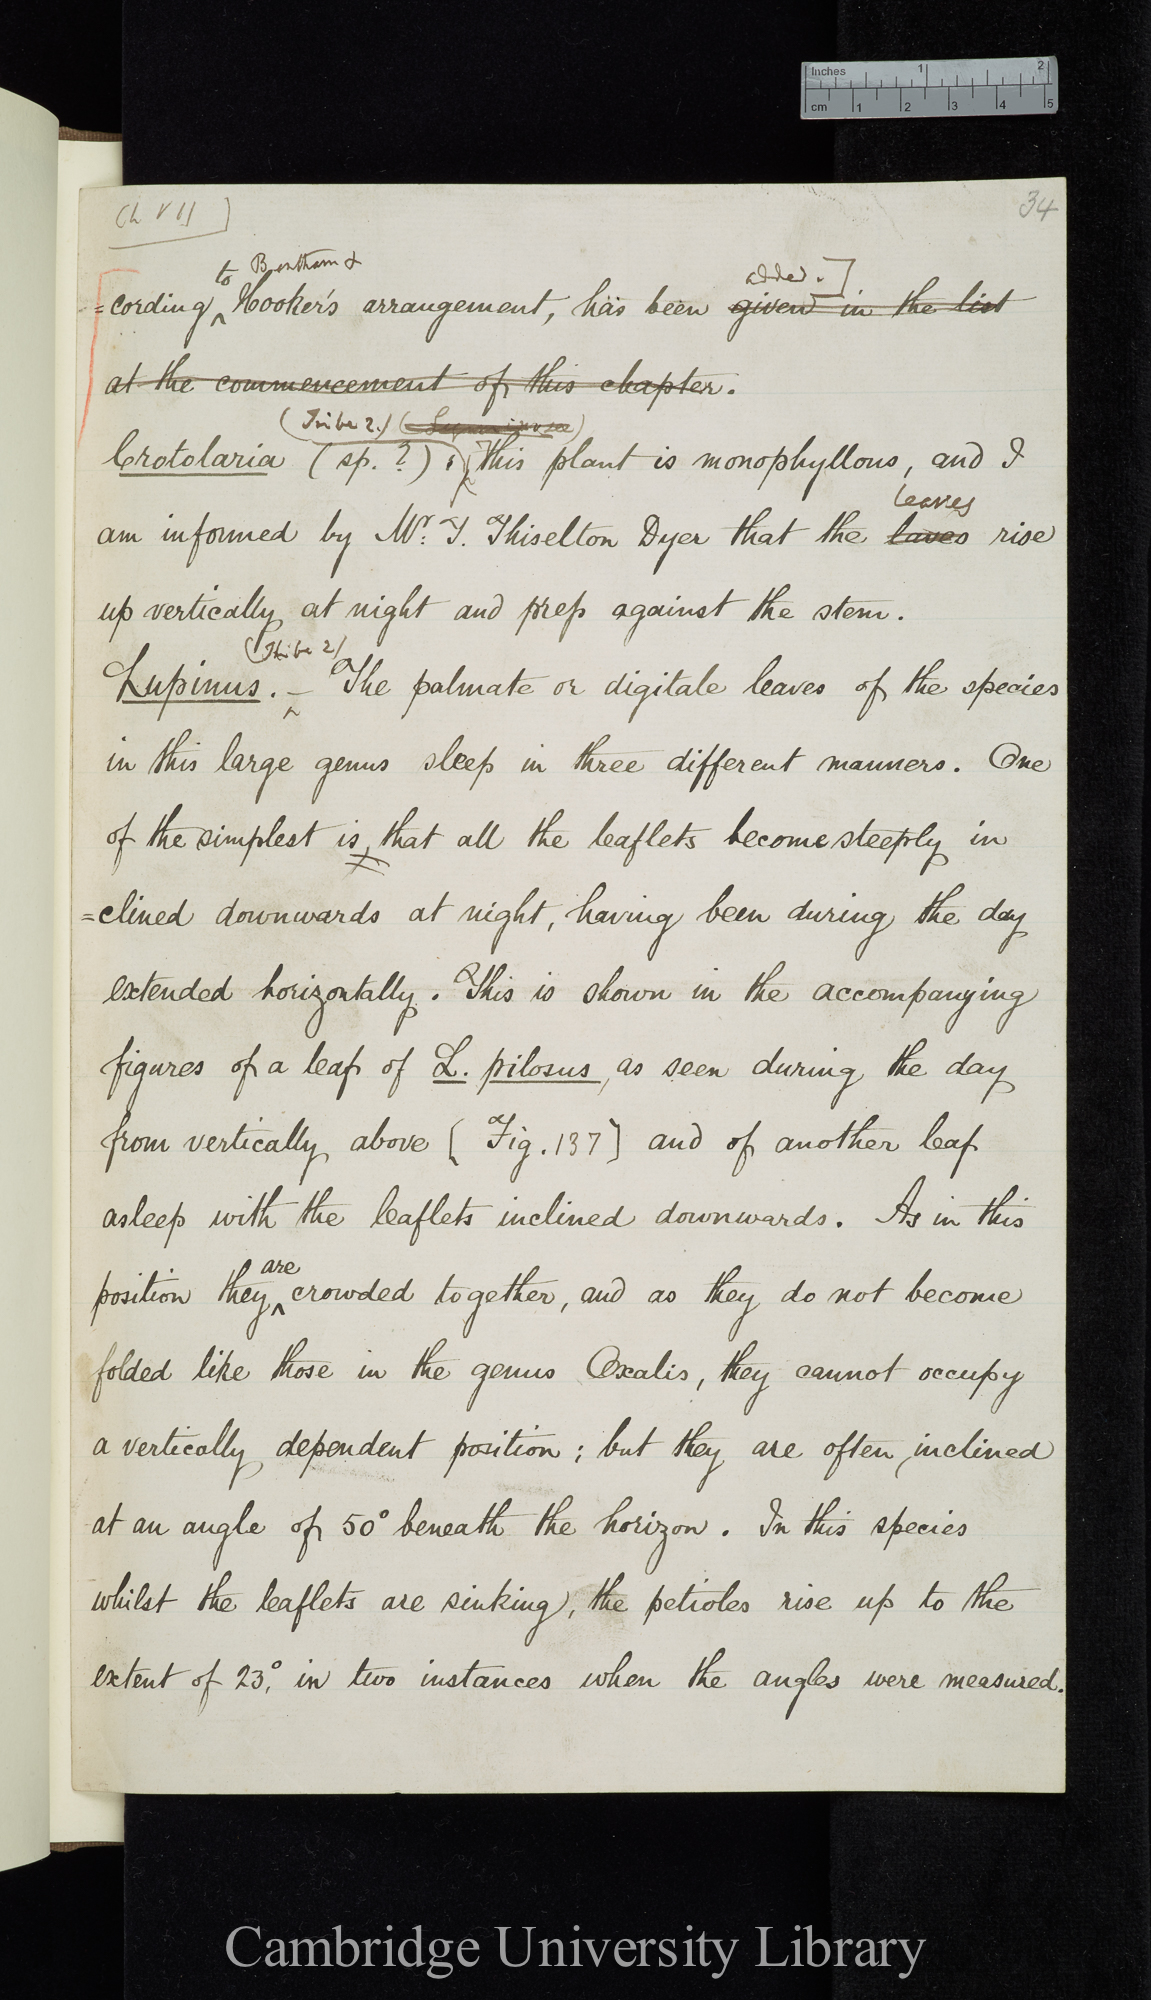 Inches 1 2
cm 1 2 3 4 5
Ch VII]
34
to Bentham &
added.]
=cording Hooker's arrangement, has been given in the list
at the commencement of this chapter.
(Tribe 2.) (Leguminosae)
Crotolaria (sp. ?) : This plant is monophyllous, and I
leaves
am informed by Mr. T. Thiselton Dyer that the laves rise
up vertically at night and press against the stem.
(Tribe 2)
Lupinus. – The palmate or digitate leaves of the species
in this large genus sleep in three different manners. One
of the simplest is, that all the leaflets become steeply in
=clined downwards at night, having been during the day
extended horizontally. This is shown in the accompanying
figures of a leaf of L. pilosus, as seen during the day
from vertically above [Fig. 137] and of another leaf
asleep with the leaflets inclined downwards. As in this
are
position they crowded together, and as they do not become
folded like those in the genus Oxalis, they cannot occupy
a vertically dependent position; but they are often inclined
at an angle of 50° beneath the horizon. In this species
whilst the leaflets are sinking, the petioles rise up to the
extent of 23°, in two instances when the angles were measured.
Cambridge University Library